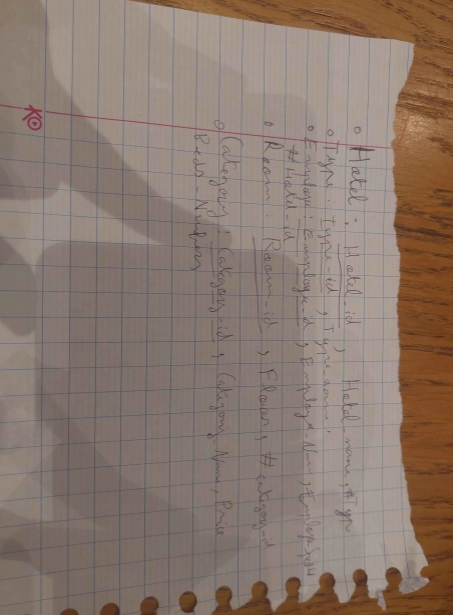 o Hotel : Hotel_id, Hotel name, #Type
o Type : Type-id, Type-name.
o Employe : Employe-id, Employe-Name, Employe
# Hotel-id
o Room : Room-id, Floor, # category-id
o Category : Category-id, Category-Name, Price
Beds-Number